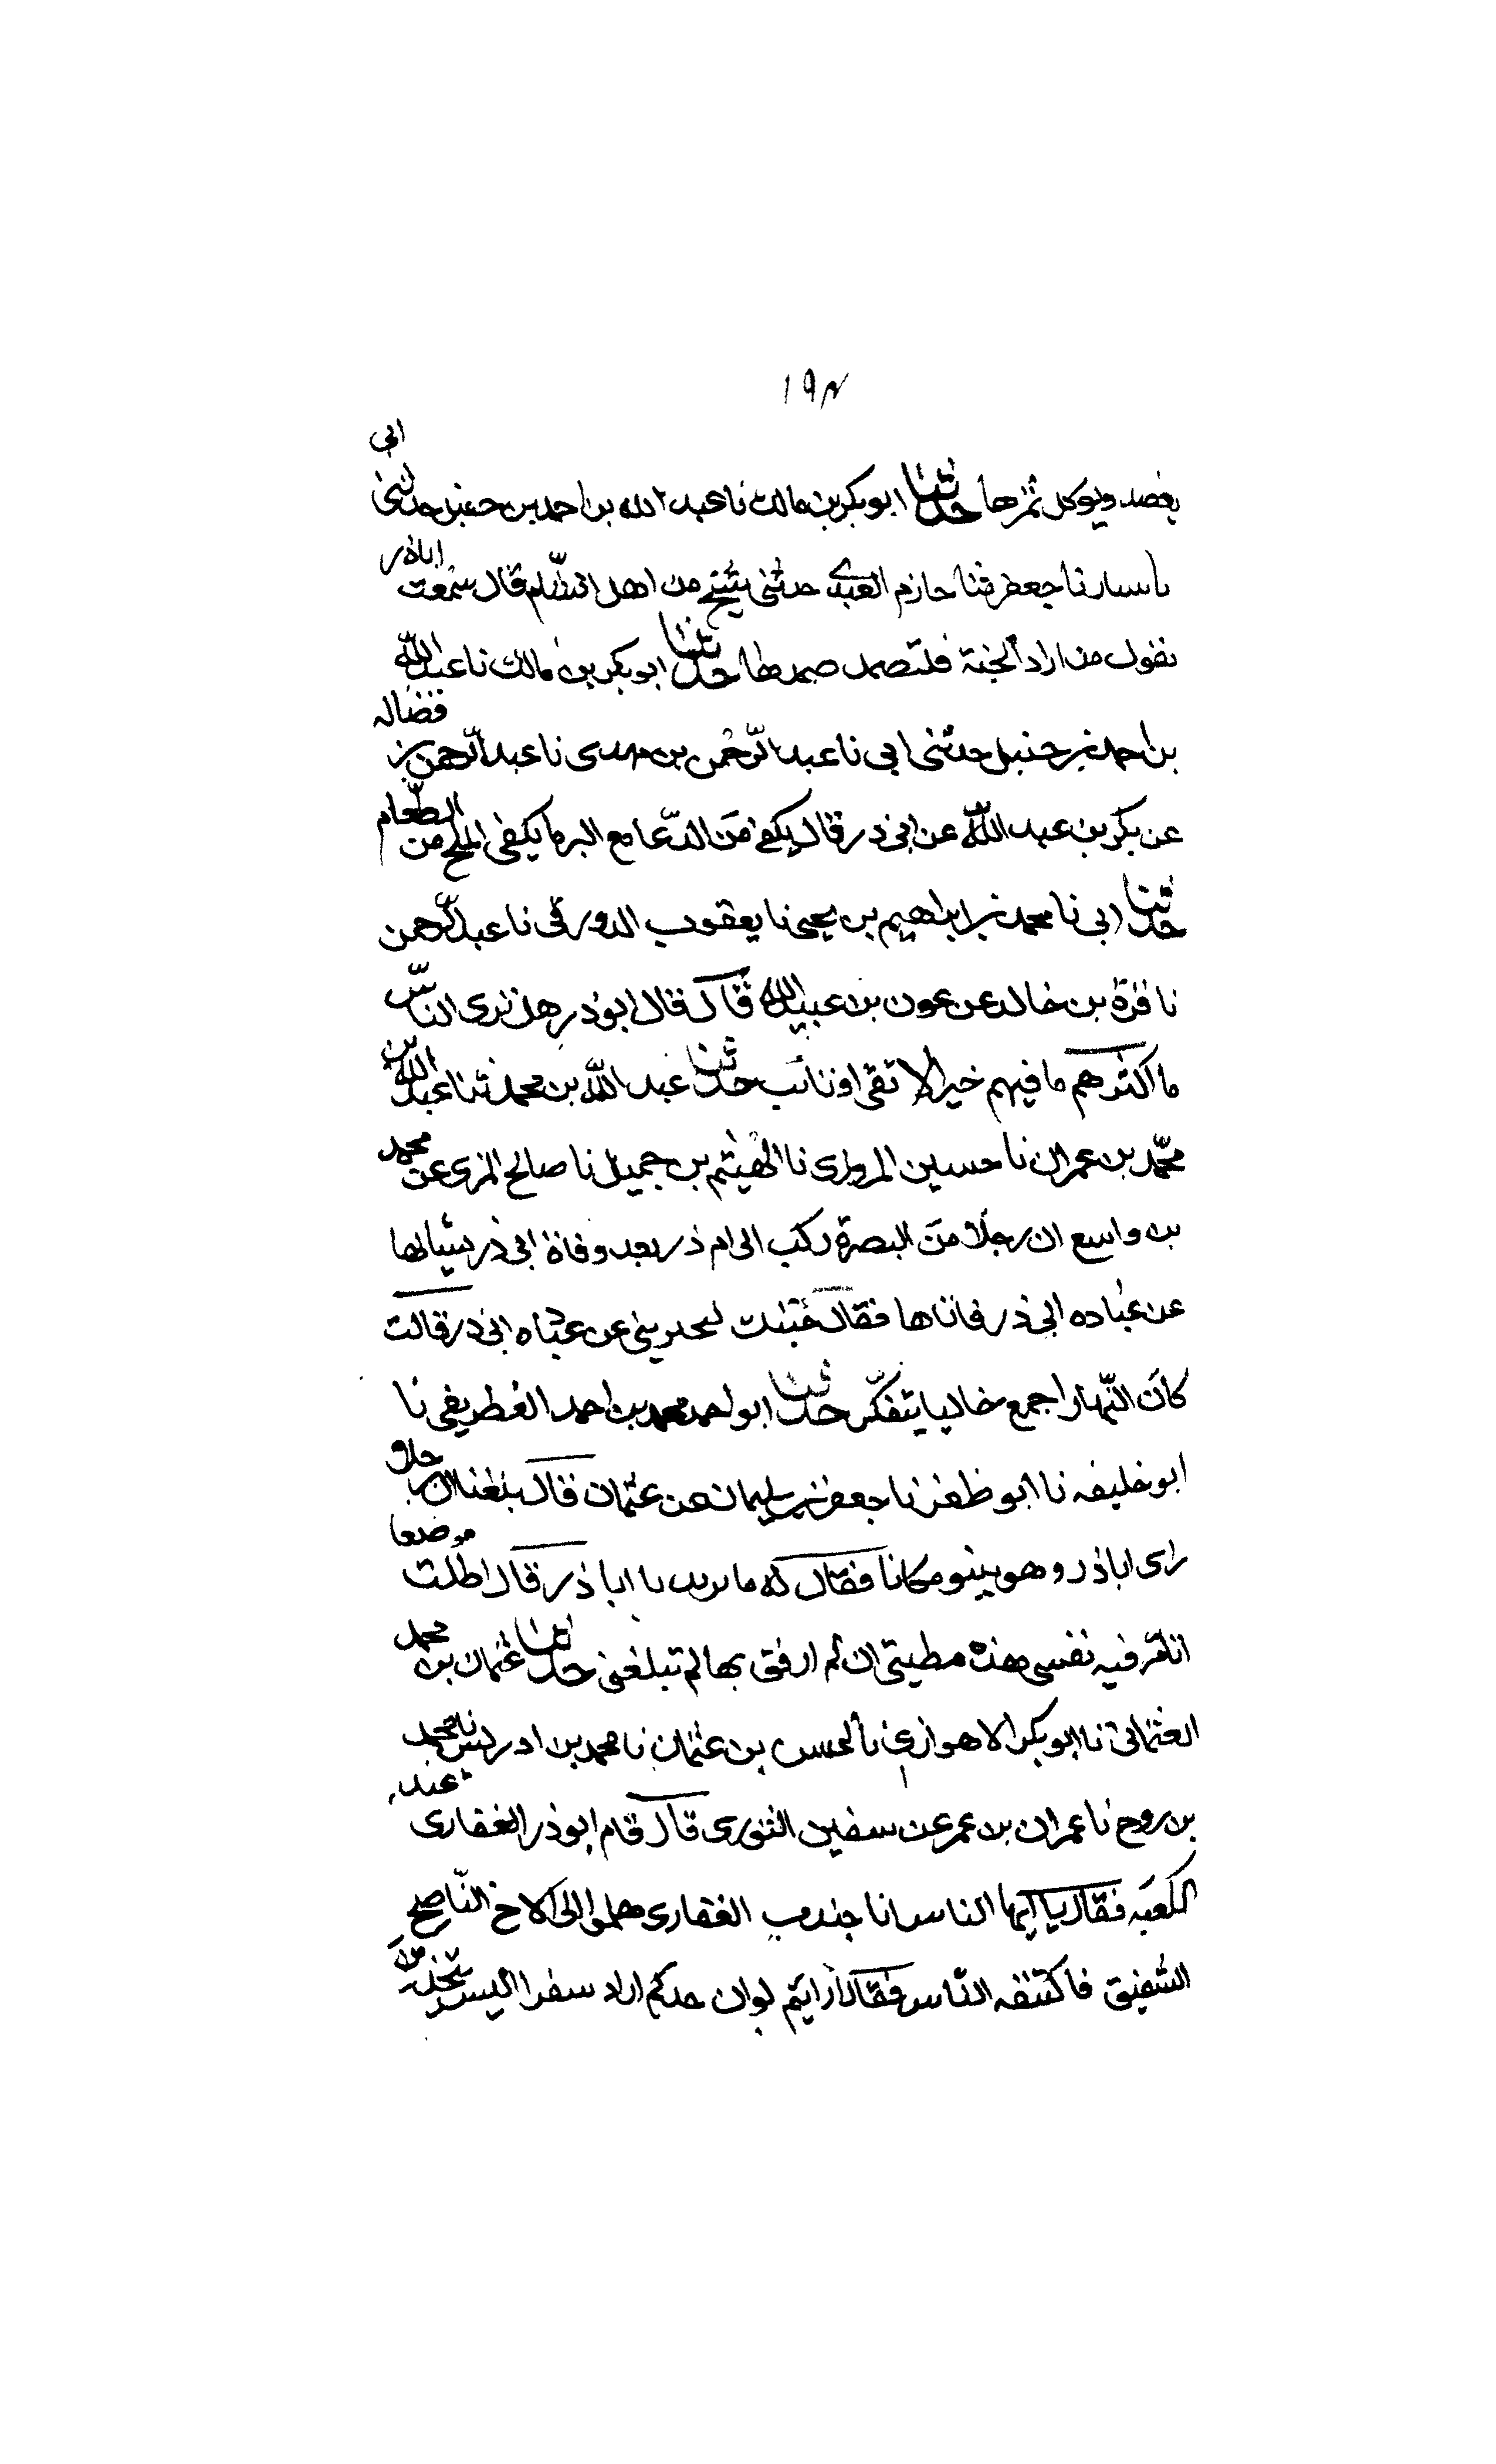 ١٩٤
يعضد ويوكل ثمرها حدثنا ابو بكر بن مالك نا عبد الله بن احمد بن حنبل حدثنى ابى
نا سيار نا جعفر ثنا حازم العبدى حدثنى شيخ من اهل الشام قال سمعت اباذر
يقول من اراد الجنة فليتصمد صمدها حدثنا ابو بكر بن مالك نا عبد الله
بن احمد بن حنبل حدثنى ابى نا عبد الرحمن بن مهدى نا عبد الرحمن بن فضاله
عن بكر بن عبد الله عن ابى ذر قال يكفى من الدعا مع البر ما يكفى الملح من الطعام
حدثنا ابى نا محمد بن ابراهيم بن يحيى نا يعقوب الدورقى نا عبد الرحمن
نا قرة بن خالد عن عون بن عبيد الله قال قال ابو ذر هل ترى الناس
ما اكثرهم ما فيهم خير الا تقى او تائب حدثنا عبد الله بن محمد ثنا عبد الله بن
محمد بن عمران نا حسين المروزى نا الهيثم بن جميل نا صالح المرى عن محمد
بن واسع ان رجلا من البصرة ركب الى ام ذر بعد وفاة ابى ذر يسألها
عن عباده ابى ذر فاتاها فقال جئتك لتخبرينى عن عباده ابى ذر قالت
كان النهار اجمع خاليا يتفكر حدثنا ابو احمد محمد بن احمد الغطريفى نا
ابو خليفه نا ابو ظفر نا جعفر بن سليمان عن عثمان قال بلغنا ان رجلا
راى اباذر وهو يبنو مكانا فقال له ما تريد يا اباذر قال اطلب موضعا
انام فيه نفسى هذه مطيتى ان لم ارفق بها لم تبلغنى حدثنا عثمان بن محمد
العثمانى نا ابو بكر الاهوازى نا الحسن بن عثمان نا محمد بن ادريس نا محمد
بن روح نا عمران بن عمر عن سفين الثورى قال قام ابو ذر الغفارى عند
الكعبه فقال يا ايها الناس انا جندب الغفارى هلموا الى الاخ الناصح
الشفيق فاكتنفه الناس فقال ارايتم لو ان احدكم اراد سفرا اليس يتخذ من